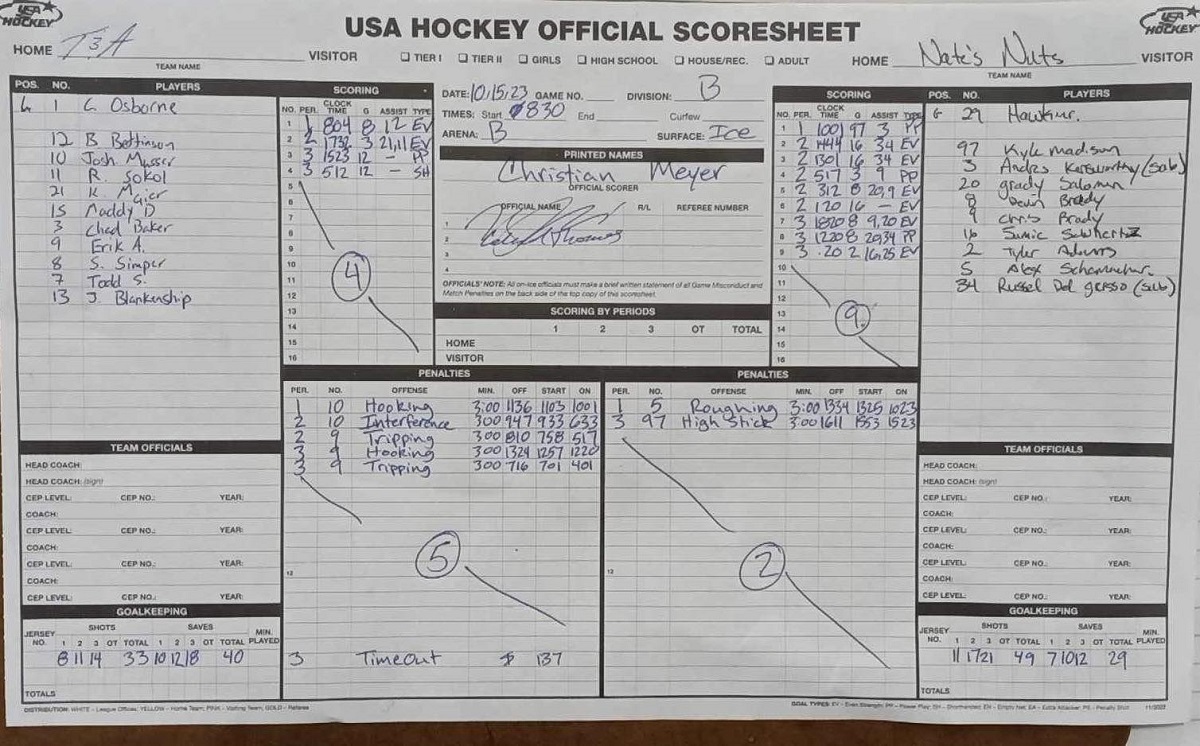 USA HOCKEY
USA HOCKEY OFFICIAL SCORESHEET
USA HOCKEY
HOME T3A VISITOR
TEAM NAME
☐ TIER I ☐ TIER II ☐ GIRLS ☐ HIGH SCHOOL ☐ HOUSE/REC. ☐ ADULT
HOME Nate's Nuts VISITOR
TEAM NAME
POS. NO. PLAYERS
G 1 C. Osborne
12 B Bettinson
10 Josh Musser
11 R. Sokol
21 K. Majer
15 Maddy D
3 Chad Baker
9 Erik A.
8 S. Simper
7 Todd S.
13 J. Blankenship
SCORING
NO. PER. CLOCK TIME G ASSIST TYPE
1 1 804 8 12 EV
2 2 1732 3 21,11 EV
3 3 1523 12 - PP
4 3 512 12 - SH
5
6
7
8
9
10
11
12
13
14
15
16
4
DATE: 10/15/23 GAME NO. DIVISION: B
TIMES: Start 830 End Curfew
ARENA: B SURFACE: Ice
PRINTED NAMES
Christian Meyer
OFFICIAL SCORER
OFFICIAL NAME R/L REFEREE NUMBER
1
2
3
4
OFFICIALS' NOTE: All on-ice officials must make a brief written statement of all Game Misconduct and
Match Penalties on the back side of the top copy of this scoresheet.
SCORING BY PERIODS
1 2 3 OT TOTAL
HOME
VISITOR
SCORING
NO. PER. CLOCK TIME G ASSIST TYPE
1 1 1001 97 3 PP
2 2 1444 16 34 EV
3 2 1301 16 34 EV
4 2 517 3 9 PP
5 2 312 8 20,9 EV
6 2 120 16 - EV
7 3 1820 8 9,20 EV
8 3 1220 8 20,34 PP
9 3 .20 2 16,25 EV
10
11
12
13
14
15
16
9
POS. NO. PLAYERS
G 29
97 Kyle madison
3 Andrs (sub)
20 grady Salomon
8 Devin Brady
9 Chris Brady
16
2 Tyler Adams
5 Alex
34 Russel Dal grosso (sub)
PENALTIES
PER. NO. OFFENSE MIN. OFF START ON
1 10 Hooking 3:00 1136 1103 1001
2 10 Interference 300 947 933 633
2 9 Tripping 300 810 758 517
3 9 Hooking 300 1324 1257 1220
3 9 Tripping 300 716 701 401
5
12
3 Timeout 137
PENALTIES
PER. NO. OFFENSE MIN. OFF START ON
1 5 Roughing 3:00 1334 1325 1023
3 97 High Stick 3:00 1611 1553 1523
2
12
TEAM OFFICIALS
HEAD COACH:
HEAD COACH: (sign)
CEP LEVEL: CEP NO.: YEAR:
COACH:
CEP LEVEL: CEP NO.: YEAR:
COACH:
CEP LEVEL: CEP NO.: YEAR:
COACH:
CEP LEVEL: CEP NO.: YEAR:
GOALKEEPING
SHOTS SAVES
JERSEY NO. 1 2 3 OT TOTAL 1 2 3 OT TOTAL MIN. PLAYED
8 11 14 33 10 12 18 40
TOTALS
TEAM OFFICIALS
HEAD COACH:
HEAD COACH: (sign)
CEP LEVEL: CEP NO.: YEAR:
COACH:
CEP LEVEL: CEP NO.: YEAR:
COACH:
CEP LEVEL: CEP NO.: YEAR:
COACH:
CEP LEVEL: CEP NO.: YEAR:
GOALKEEPING
SHOTS SAVES
JERSEY NO. 1 2 3 OT TOTAL 1 2 3 OT TOTAL MIN. PLAYED
11 17 21 49 7 10 12 29
TOTALS
DISTRIBUTION: WHITE - League Offices; YELLOW - Home Team; PINK - Visiting Team; GOLD - Referee
GOAL TYPES: EV - Even Strength; PP - Power Play; SH - Shorthanded; EN - Empty Net; EA - Extra Attacker; PS - Penalty Shot